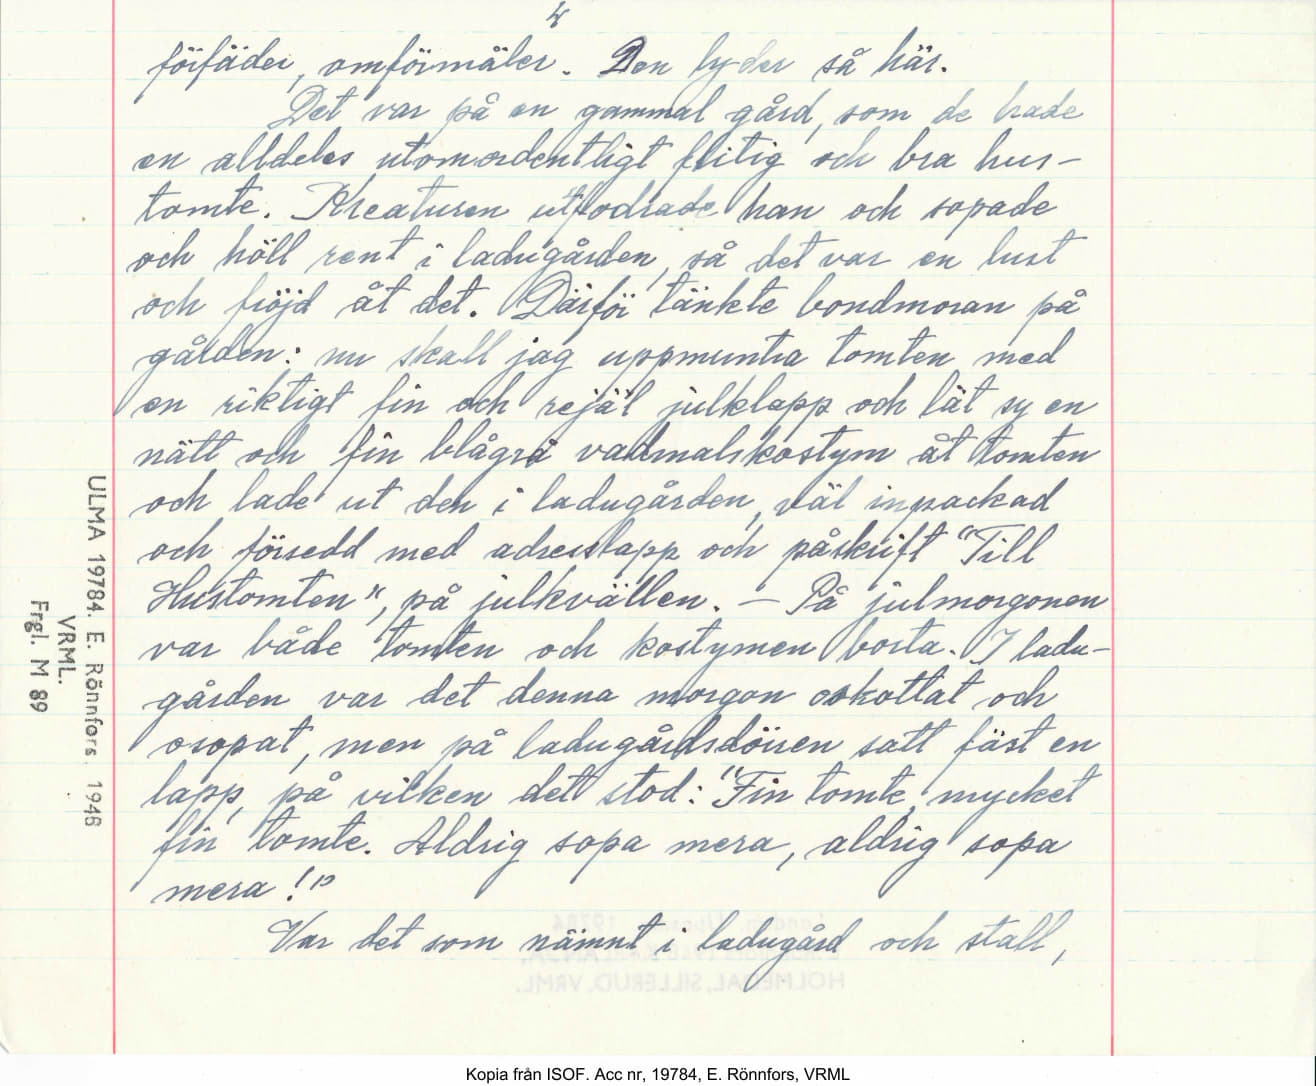 4
förfäder, omförmäler. Den lyder så här.
Det var på en gammal gård, som de hade
en alldeles utomordentligt flitig och bra hus-
tomte. Kreaturen utfodrade han och sopade
och höll rent i ladugården, så det var en lust
och fröjd åt det. Därför tänkte bondmoran på
gården: nu skall jag uppmuntra tomten med
en riktigt fin och rejäl julklapp och lät sy en
nätt och fin blågrå vadmalskostym åt tomten
och lade ut den i ladugården, väl inpackad
och försedd med adresslapp och påskrift "Till
Hustomten", på julkvällen. – På julmorgonen
var både tomten och kostymen borta. I ladu-
gården var det denna morgon oskottat och
osopat, men på ladugårdsdörren satt fäst en
lapp, på vilken det stod: "Fin tomte, mycket
fin tomte. Aldrig sopa mera, aldrig sopa
mera!"
Var det som nämnt i ladugård och stall,
ULMA 19784. E. Rönnfors. 1946
VRML.
Frgl. M 89
HOLMEDAL, SILLERUD, VRML.
Kopia från ISOF. Acc nr, 19784, E. Rönnfors, VRML